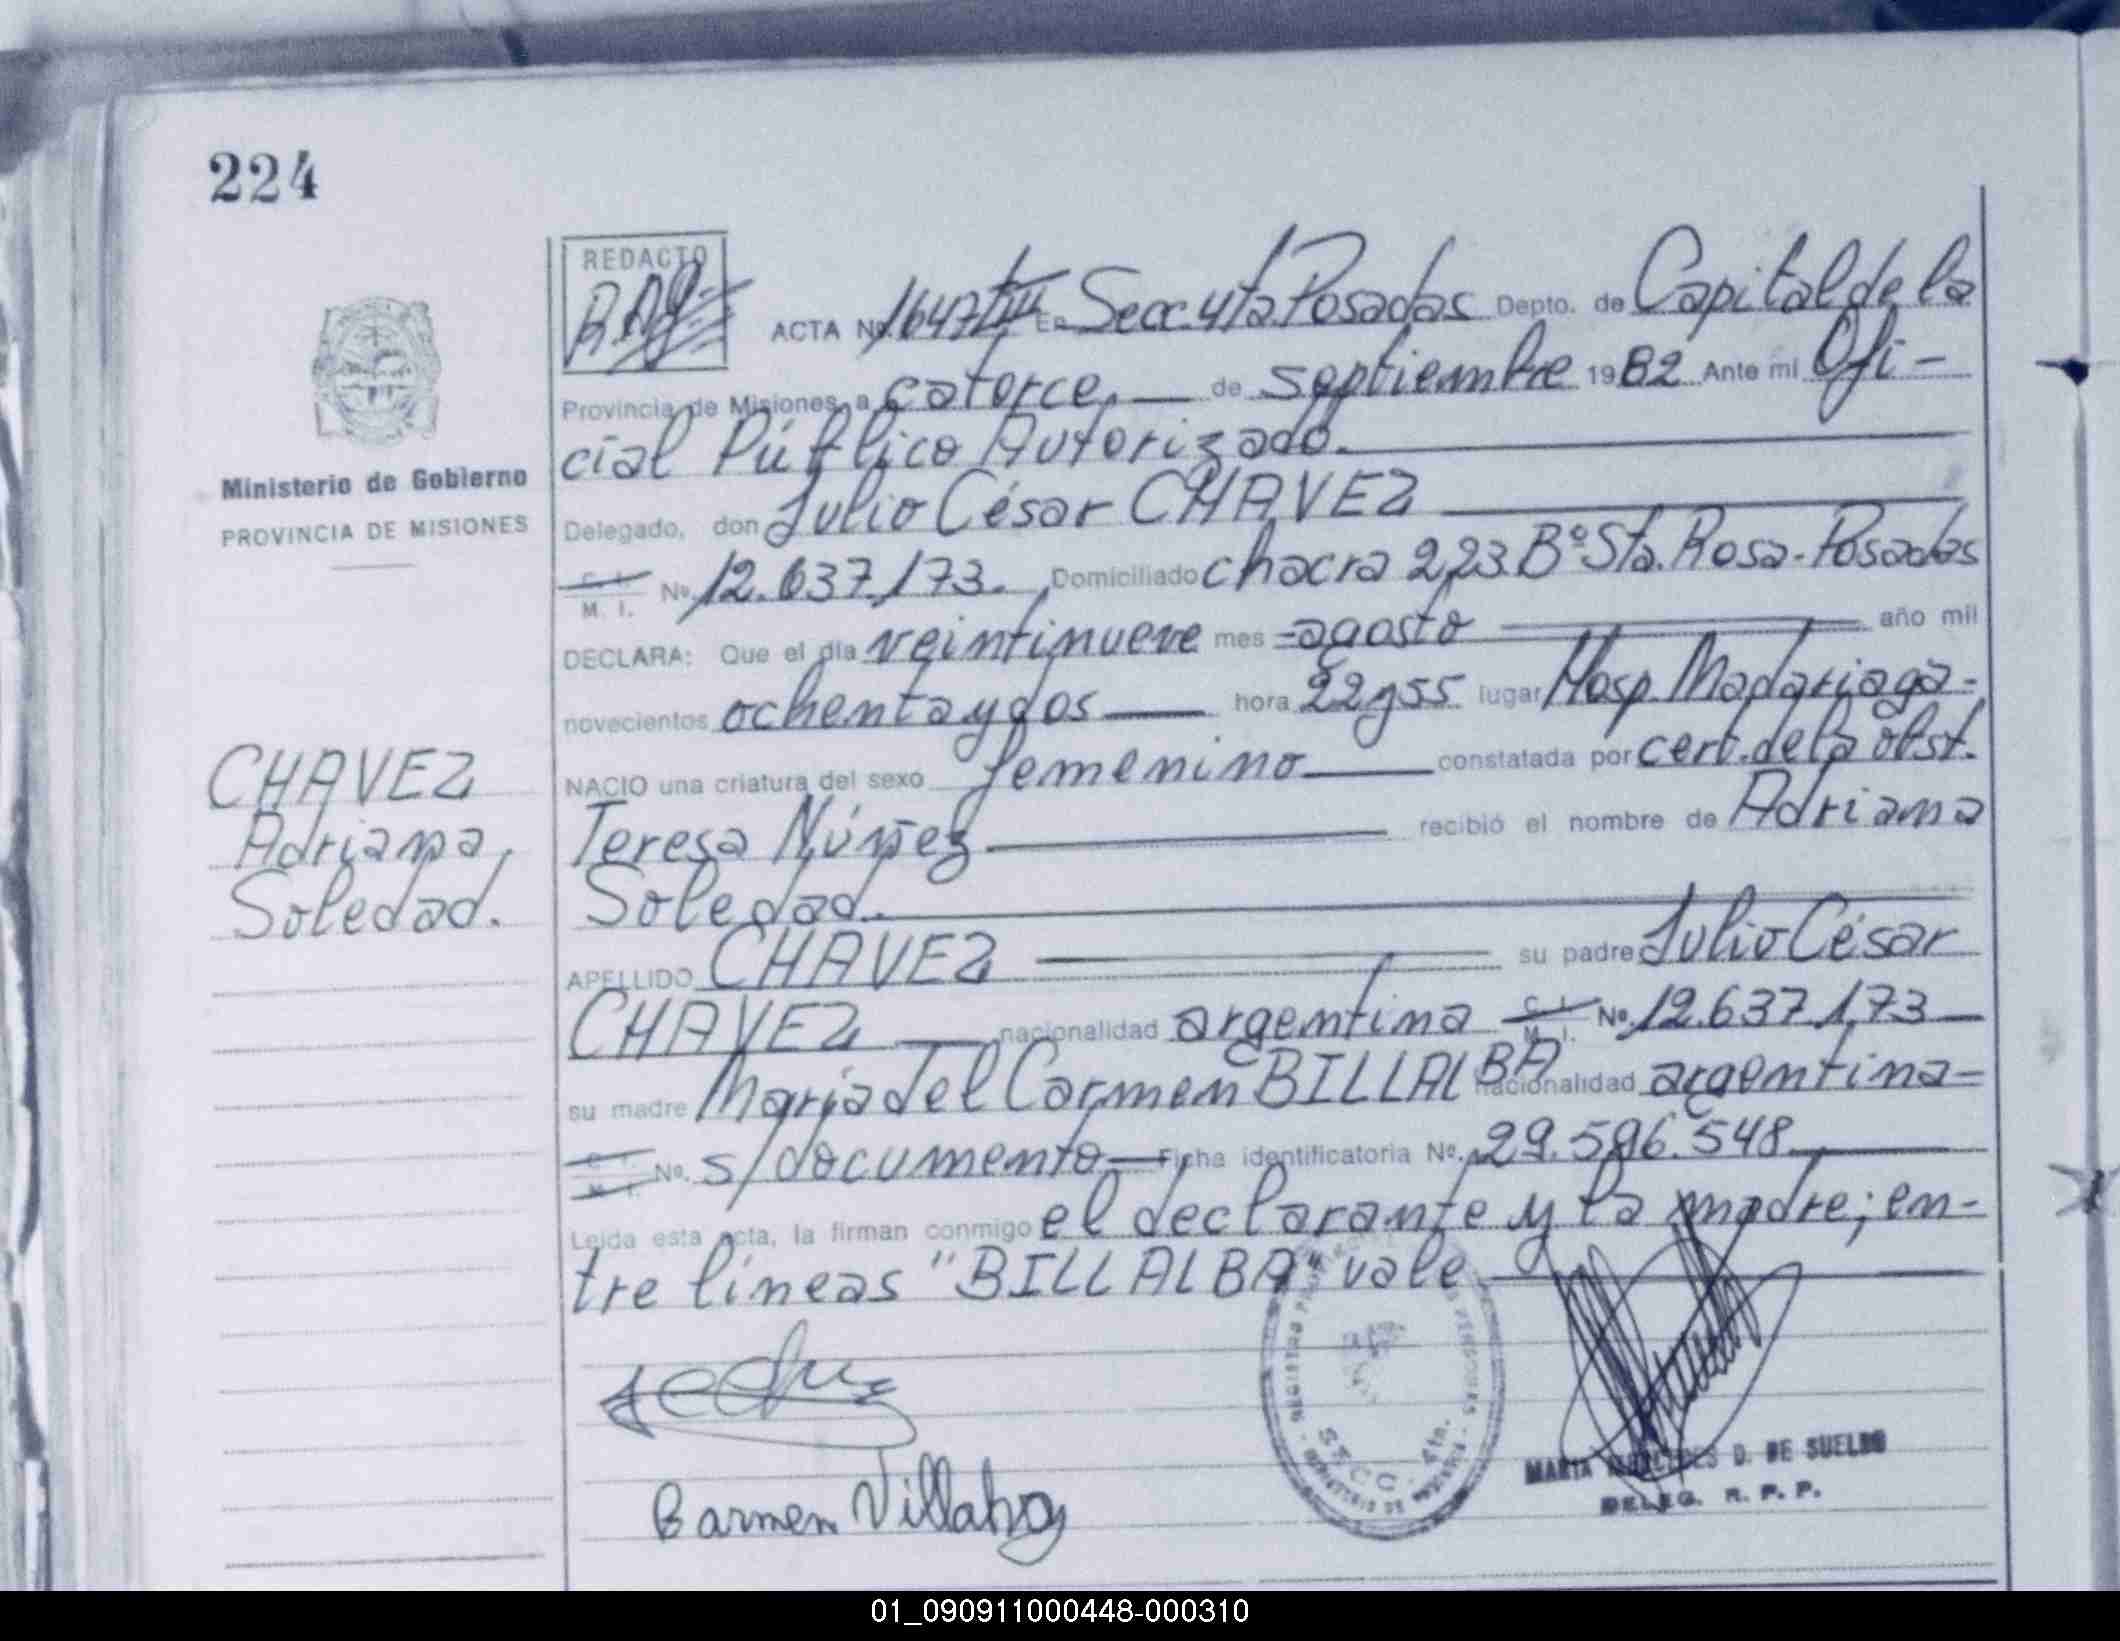 224
REDACTO
ACTA No. 1647 En Secc. 4ta. Posadas Depto. de Capital de la
Provincia de Misiones a catorce. de septiembre 1982 Ante mi Ofi-
cial Público Autorizado.
Ministerio de Gobierno
PROVINCIA DE MISIONES
Delegado, don Julio César CHAVEZ
C. I. M. I. No. 12.637.173. Domiciliado chacra 223. Bº Sta. Rosa - Posadas
DECLARA: Que el día veintinueve mes agosto año mil
novecientos ochenta y dos hora 22 y 55 lugar Hosp. Madariaga-
NACIO una criatura del sexo femenino constatada por cert. de la obst.
CHAVEZ
Adriana
Soledad.
Teresa Núñez recibió el nombre de Adriana
Soledad.
APELLIDO CHAVEZ su padre Julio César
CHAVEZ nacionalidad argentina C. I. M. I. No. 12.637.173
su madre María del Carmen BILLALBA nacionalidad argentina-
C. I. M. I. No. s/documento Ficha identificatoria No. 29.596.548
Leida esta acta, la firman conmigo el declarante y la madre; en-
tre líneas "BILLALBA" vale
Carmen Villalva
SECC. 4ta.
MARIA MERCEDES D. DE SUELDO
DELEG. R. P. P.
01_090911000448-000310